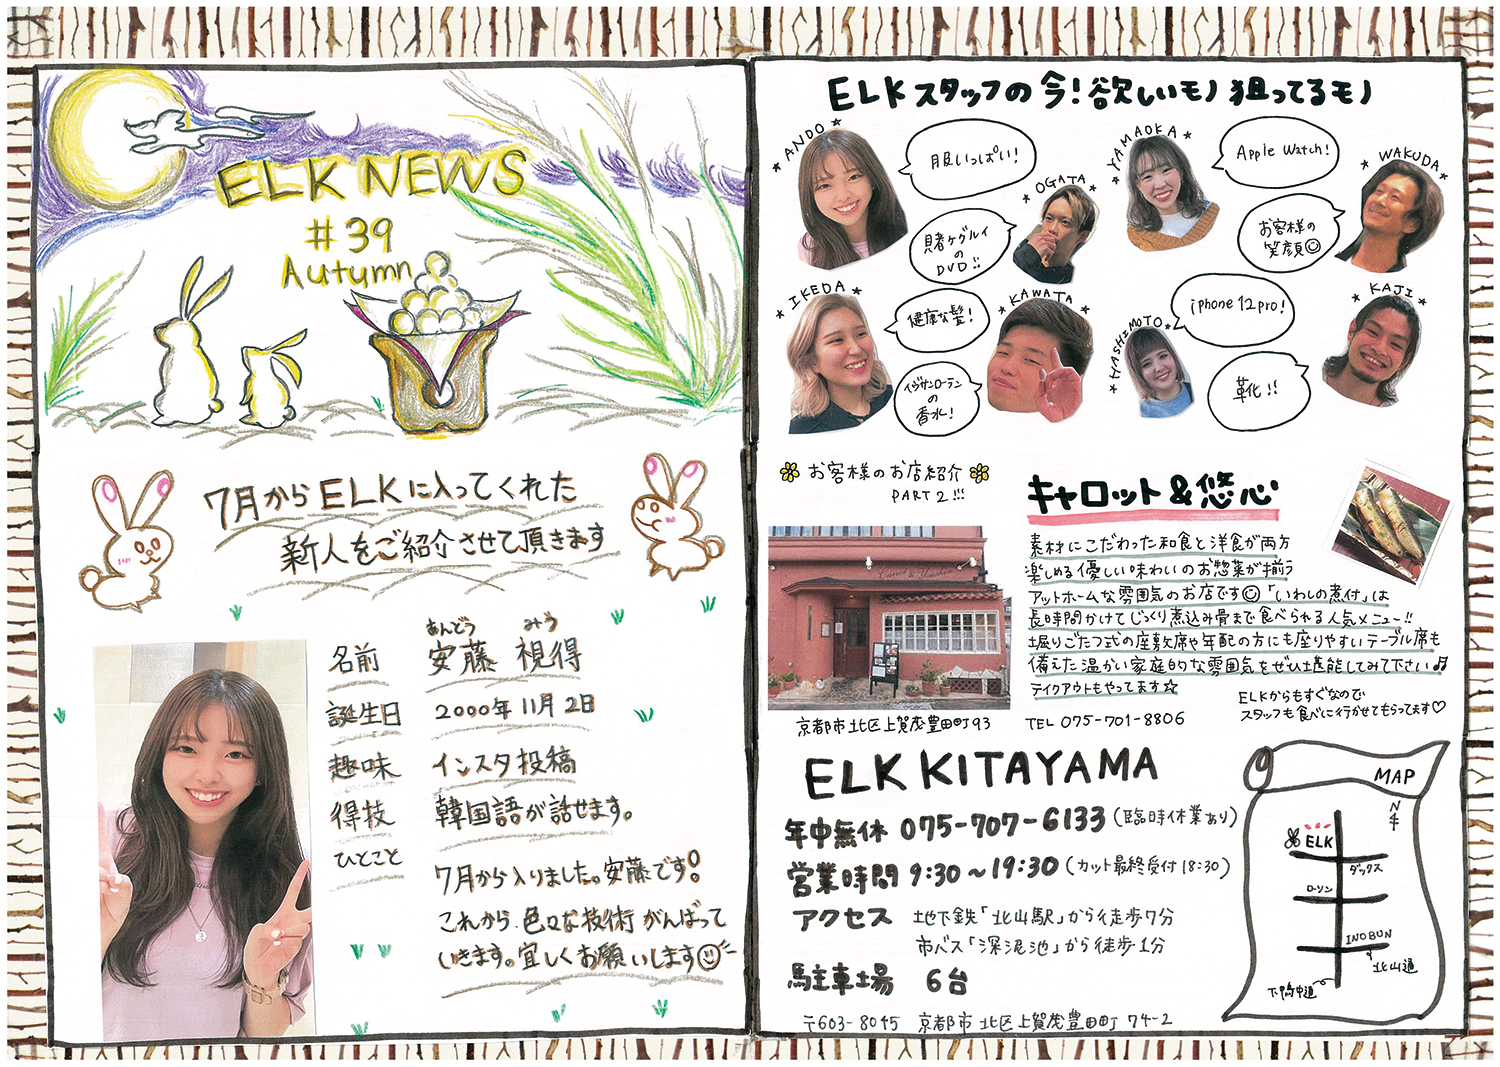 ELK NEWS
#39
Autumn
7月からELKに入ってくれた
新人をご紹介させて頂きます
あんどう みう
名前 安藤 視得
誕生日 2000年11月2日
趣味 インスタ投稿
得技 韓国語が話せます。
ひとこと
7月から入りました。安藤です!
これから、色々な技術がんばって
いきます。宜しくお願いします
ELKスタッフの今!欲しいモノ狙ってるモノ
ANDO
服いっぱい!
OGATA
賭ケグルイ
の
DVD!!
YAMAOKA
Apple Watch!
WAKUDA
お客様の
笑顔
IKEDA
健康な髪!
KAWATA
イヴサンローテン
の
香水!
HASHIMOTO
iphone 12pro!
KAJI
靴!!
お客様のお店紹介
PART2!!!
キャロット&悠心
素材にこだわった和食と洋食が両方
楽しめる優しい味わいのお惣菜が揃う
アットホームな雰囲気のお店です「いわしの煮付」は
長時間かけてじっくり煮込み骨まで食べられる人気メニュー!!
堀りごたつ式の座敷席や年配の方にも座りやすいテーブル席も
備えた温かい家庭的な雰囲気をぜひ堪能してみて下さい♫
テイクアウトもやってます☆
ELKからもすぐなので
スタッフも食べに行かせてもらってます♡
京都市北区上賀茂豊田町93
TEL 075-701-8806
ELK KITAYAMA
年中無休 075-707-6133(臨時休業あり)
営業時間 9:30~19:30(カット最終受付18:30)
アクセス 地下鉄「北山駅」から徒歩7分
市バス「深泥池」から徒歩1分
駐車場 6台
〒603-8045 京都市北区上賀茂豊田町74-2
MAP
N
ELK
ダックス
ローソン
INOBUN
北山通
下鴨中通